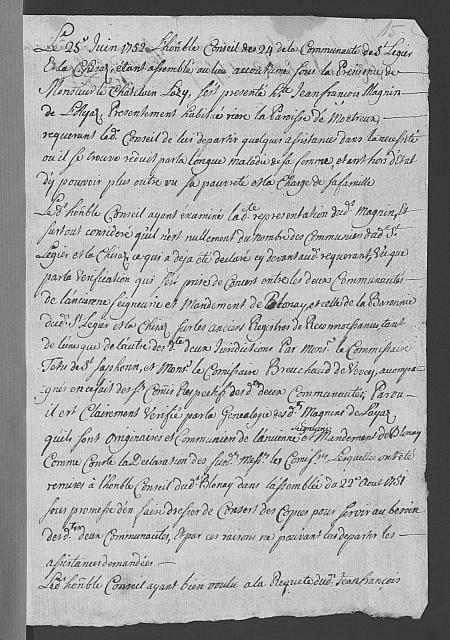 15
Le 25e. Juin 1752 L'honble Conseil des 24 de la Communauté de St. Legier
Et la Chiza, étant assemblé au lieu accoutumé sous la Présidence de
Monsieur le Chatelain Lazy, s'est présenté hte Jean françois Magnin
de L'Ayaz, Présentement habitué riere la Paroisse de Montreux,
requerant lad. Conseil de lui départir quelque assistance dans la necessité
où il se trouve réduit par la longue maladie de sa femme, et etant hors d'état
d'y pouvoir plus outre vû sa pauvreté et la Charge de sa famille
Led. honble Conseil ayant éxaminé lade. représentation dud. Magnin, Et
surtout consideré qu'il n'est nullement du nombre des Communiers dud. St.
Legier et la Chiza, ce qui a deja eté declaré cy devant aud. requerant, Vû que
par la Verification qui fut prise de Concert entre les deux Communautés
de l'ancienne Seigneurie et Mandement de Blonay, et celle de la Baronnie
dud. St. Legier et la Chiza, sur les anciens Registres de Reconnoissance, tant
de l'une que de l'autre des dtes deux Jurisdictions Par Monsr. le Commissaire
de St. Saphorin, et Monsr. le Comissaire Breuchaud de Vevey, accompa-
gnés en ce fait des Srs. Comis Respectifs desd. deux Communautés, Par ou
il est Clairement Verifié par la Genealogie desd. Magnins de Layaz
qu'ils sont Originaires et Communiers de l'ancienne Seigneurie et Mandement de Blonay
Comme Conste la Declaration des susd. Messrs. les Comissres, Lesquelles ont eté
remises à l'honble Conseil dud. Blonay dans l'assemblée du 22e. Aout 1751
sous promesse d'en faire dresser de Concert des Copies pour servir au besoin
desd. deux Communautés, Et par ces raisons ne pouvant lui departir les
assistances demandées
Led. honble Conseil ayant bien voulu a la Requête dud. Jean françois